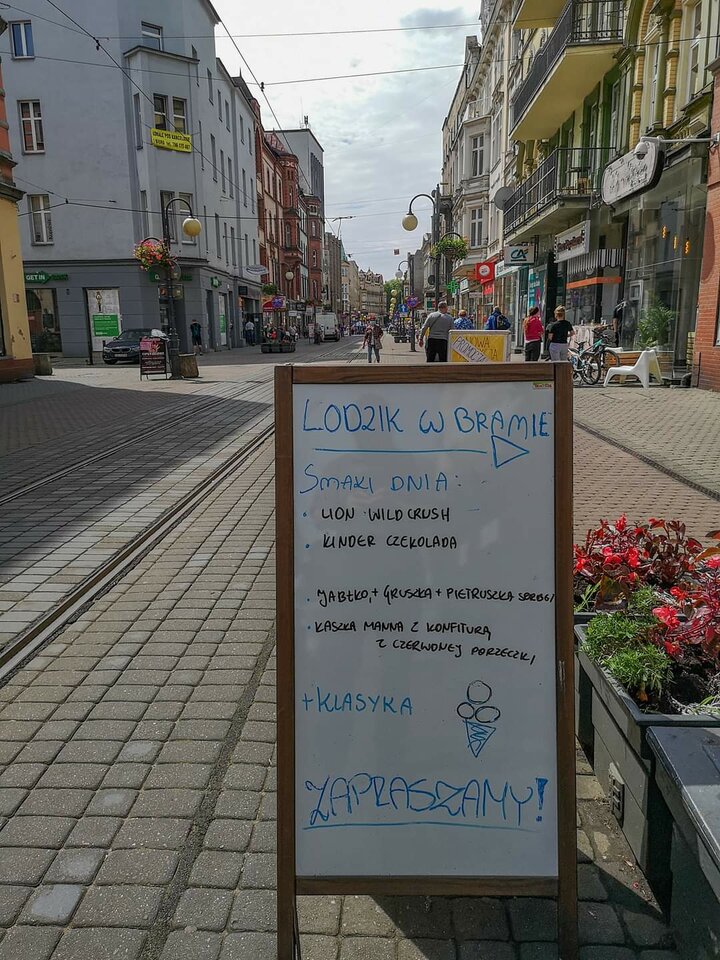 LODZIK W BRAMIE
SMAKI DNIA:
• LION WILD CRUSH
• KINDER CZEKOLADA
• JABŁKO, + GRUSZKA + PIETRUSZKA SORBET
• KASZKA MANNA Z KONFITURĄ
Z CZERWONEJ PORZECZKI
+ KLASYKA
ZAPRASZAMY!
GET IN
CA
NOWA